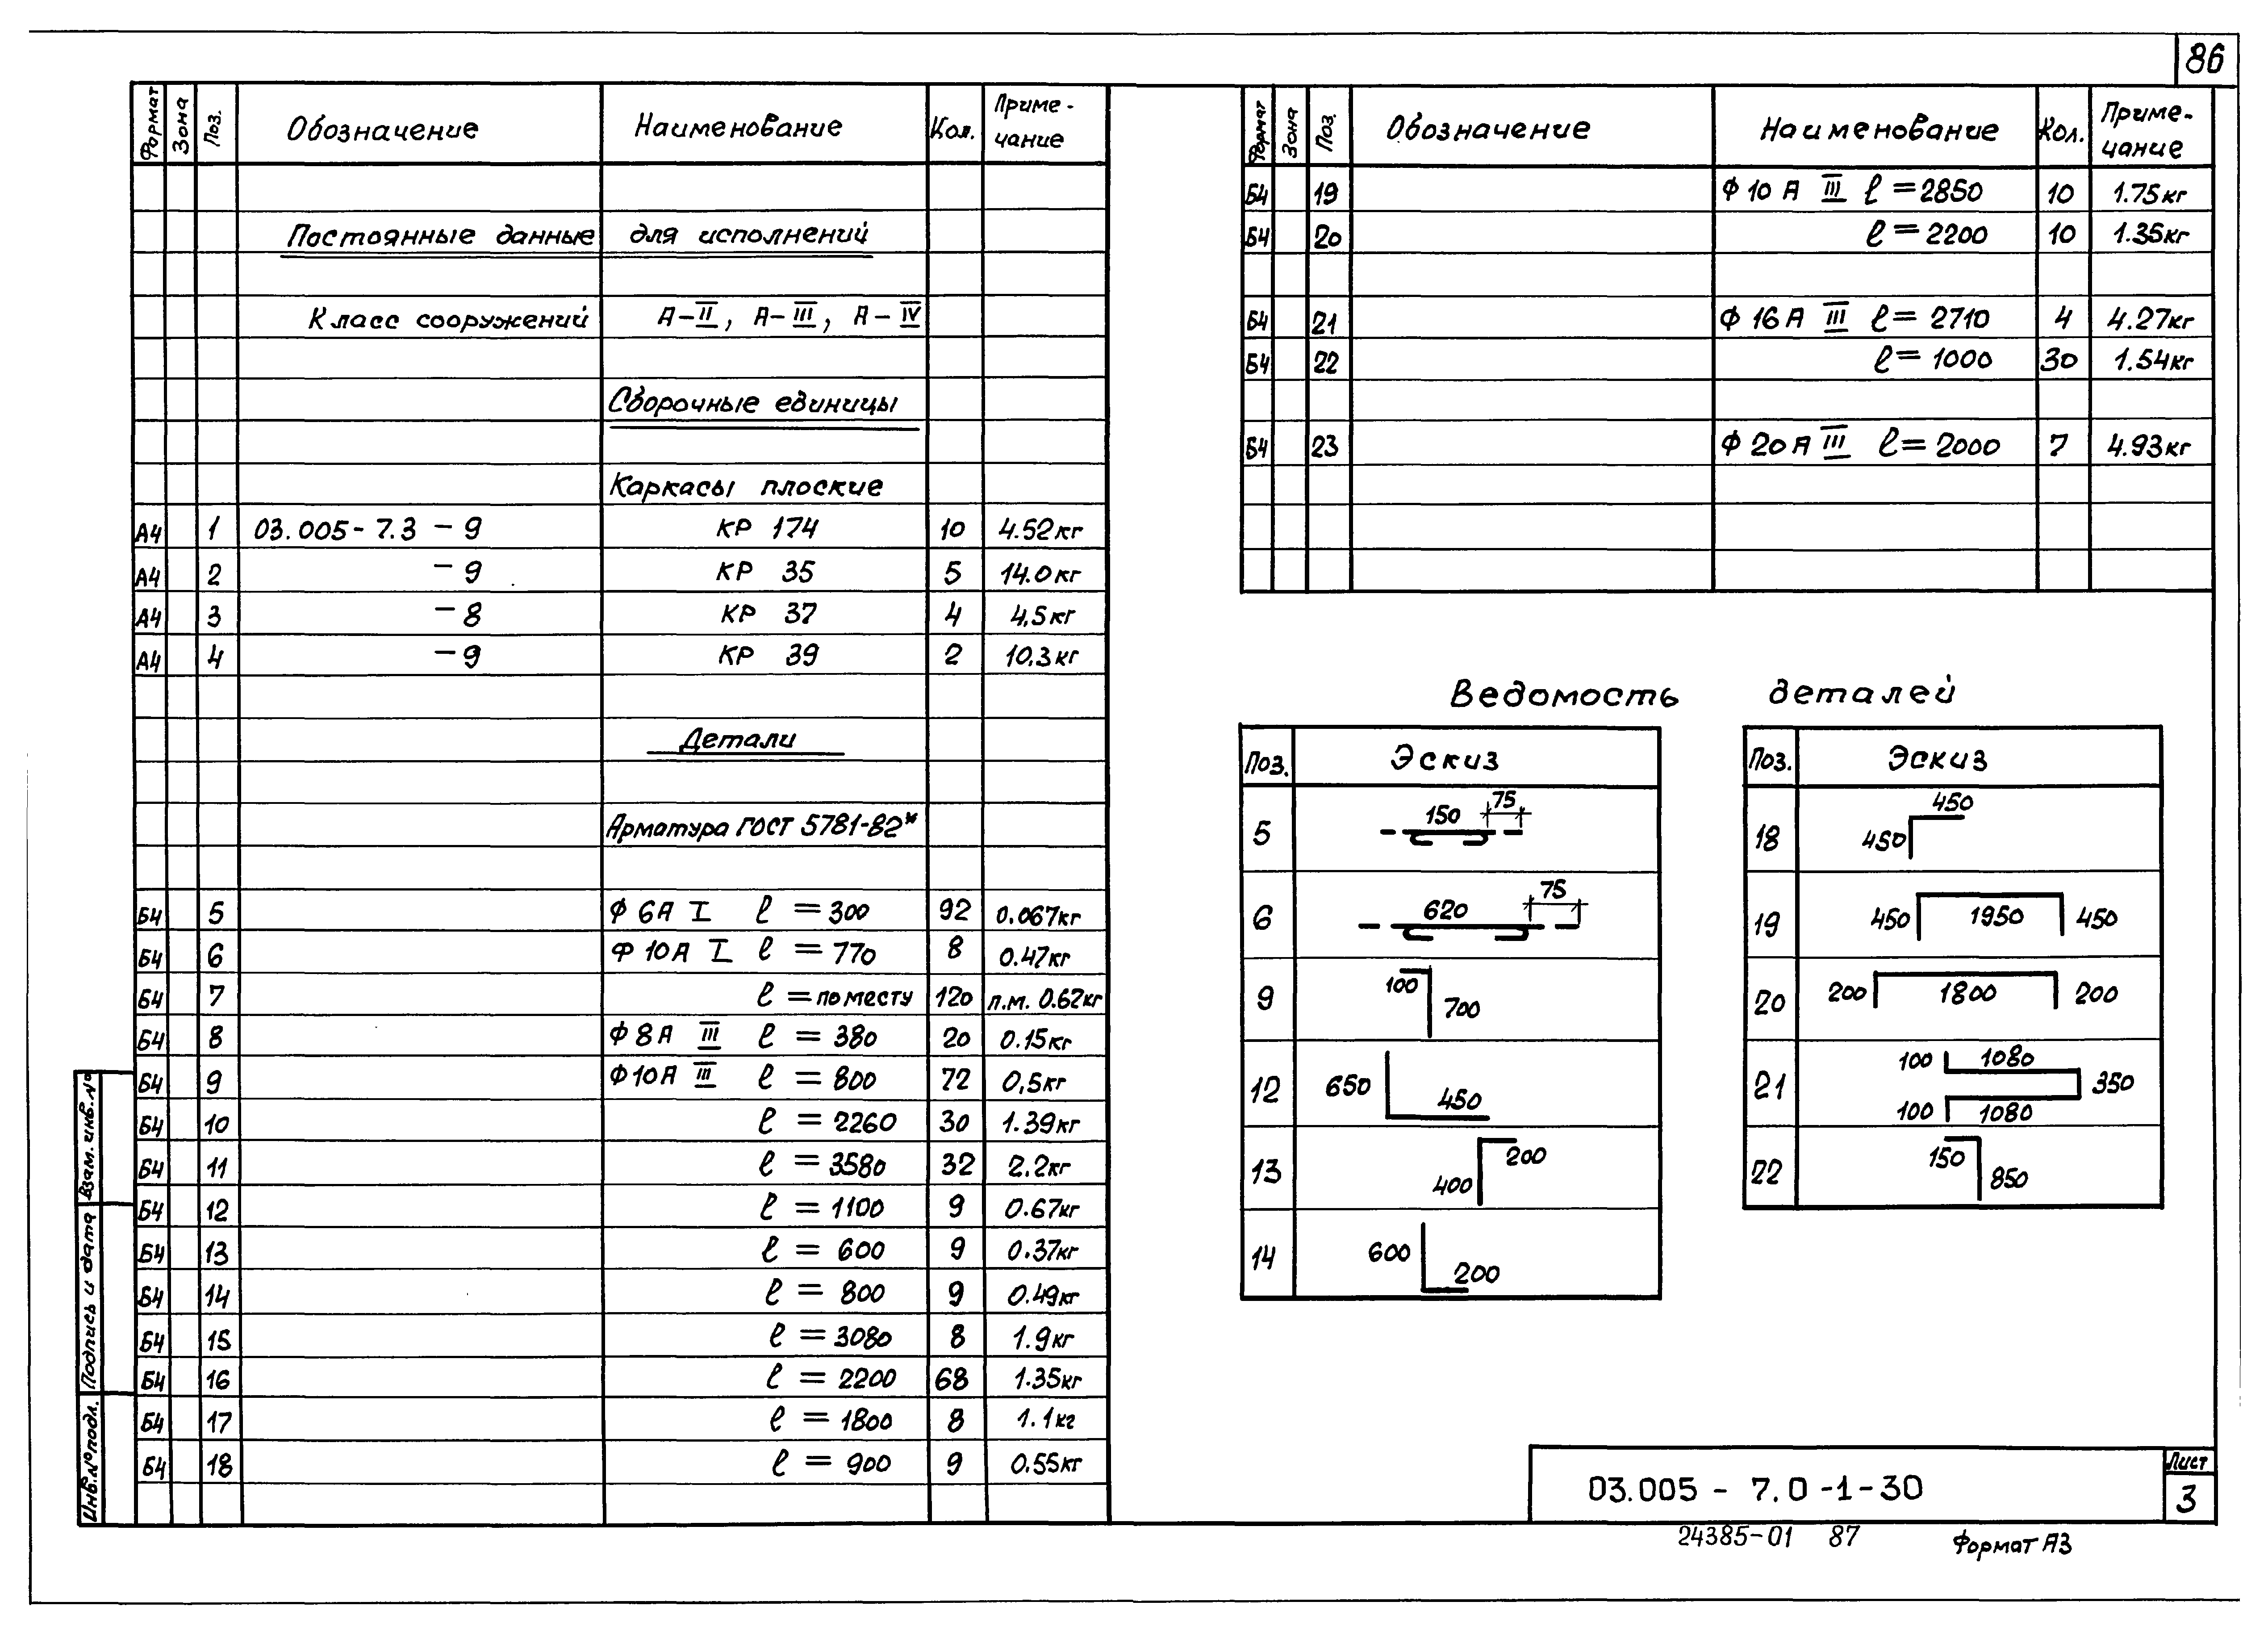 86
Формат Зона Поз. Обозначение Наименование Кол. Приме-чание
Постоянные данные для исполнений
Класс сооружений А-II, А-III, А-IV
Сборочные единицы
Каркасы плоские
А4 1 03.005-7.3 -9 КР 174 10 4.52кг
А4 2 -9 КР 35 5 14.0кг
А4 3 -8 КР 37 4 4,5кг
А4 4 -9 КР 39 2 10,3кг
Детали
Арматура ГОСТ 5781-82*
Б4 5 Ф 6А I ℓ = 300 92 0.067кг
Б4 6 Ф 10А I ℓ = 770 8 0.47кг
Б4 7 ℓ = по месту 120 п.м. 0.62кг
Б4 8 Ф 8А III ℓ = 380 20 0.15кг
Б4 9 Ф10А III ℓ = 800 72 0,5кг
Б4 10 ℓ = 2260 30 1.39кг
Б4 11 ℓ = 3580 32 2.2кг
Б4 12 ℓ = 1100 9 0.67кг
Б4 13 ℓ = 600 9 0.37кг
Б4 14 ℓ = 800 9 0.49кг
Б4 15 ℓ = 3080 8 1.9кг
Б4 16 ℓ = 2200 68 1.35кг
Б4 17 ℓ = 1800 8 1.1кг
Б4 18 ℓ = 900 9 0.55кг
Формат Зона Поз. Обозначение Наименование Кол. Приме-чание
Б4 19 Ф 10 А III ℓ = 2850 10 1.75кг
Б4 20 ℓ = 2200 10 1.35кг
Б4 21 Ф 16 А III ℓ = 2710 4 4.27кг
Б4 22 ℓ = 1000 30 1.54кг
Б4 23 Ф 20 А III ℓ = 2000 7 4.93кг
Ведомость деталей
Поз. Эскиз
5 150 75
6 620 75
9 100 700
12 650 450
13 400 200
14 600 200
Поз. Эскиз
18 450 450
19 450 1950 450
20 200 1800 200
21 100 1080 350 100 1080
22 150 850
Взам. инв. №
Подпись и дата
Инв. № подл.
03.005 - 7.0 -1-30
Лист
3
24385-01 87
Формат А3